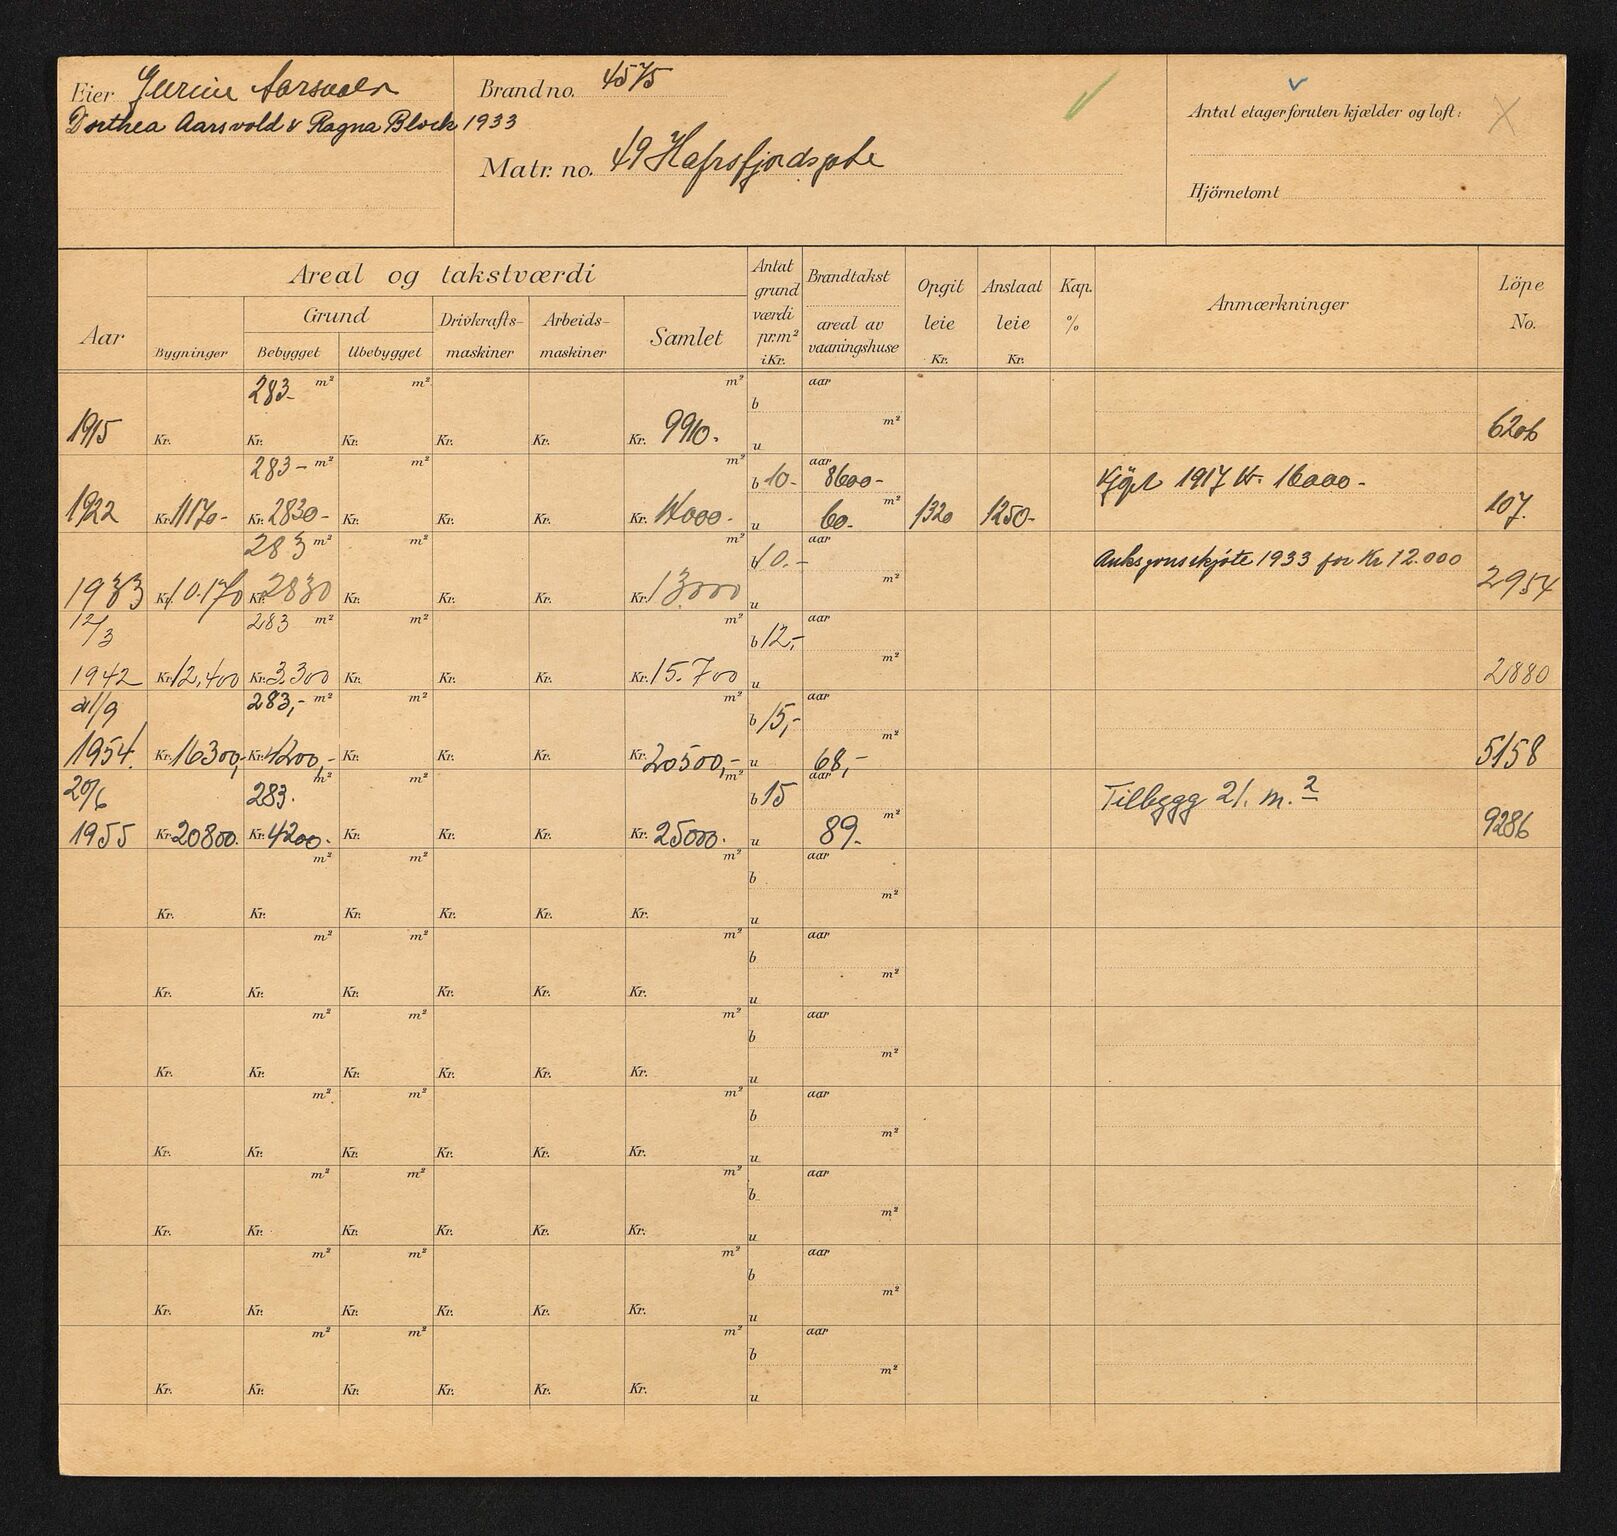 Eier Gurine Aarsvold
Dorthea Aarsvold & Ragna Block 1933
Brand no. 4575
Matr. no. 49 Hafrsfjordsgate
Antal etager foruten kjælder og loft:
Hjörnetomt
Areal og takstværdi
Aar
Bygninger
Grund
Bebygget Ubebygget
Drivkrafts-maskiner
Arbeids-maskiner
Samlet
Antat grund værdi pr. m² i Kr.
Brandtakst
areal av vaaningshuse
Opgit leie Kr.
Anslaat leie Kr.
Kap. %
Anmærkninger
Löpe No.
283- m² m² m² b aar
1915 Kr. Kr. Kr. Kr. Kr. Kr. 9910. u m² 6206
283- m² m² m² b 10- aar 8600- Kjöpt 1917 Kr. 16000-
1922 Kr. 11170- Kr. 2830- Kr. Kr. Kr. Kr. 14000- u 60- m² 1320 1250- 107.
283 m² m² m² b 10.- aar Auksjonsskjøte 1933 for Kr 12.000
1933 Kr. 10.170 Kr. 2830 Kr. Kr. Kr. Kr. 13000 u m² 2954
12/3 283 m² m² m² b 12,- aar
1942 Kr. 12,400 Kr. 3.300 Kr. Kr. Kr. Kr. 15.700 u m² 2880
21/9 283,- m² m² m² b 15,- aar
1954. Kr. 16300,- Kr. 4200,- Kr. Kr. Kr. Kr. 20500,- u 68,- m² 5158
20/6 283. m² m² m² b 15 aar Tilbygg 21. m.²
1955 Kr. 20800. Kr. 4200. Kr. Kr. Kr. Kr. 25000. u 89.- m² 9286
m² m² m² b aar
Kr. Kr. Kr. Kr. Kr. Kr. u m²
m² m² m² b aar
Kr. Kr. Kr. Kr. Kr. Kr. u m²
m² m² m² b aar
Kr. Kr. Kr. Kr. Kr. Kr. u m²
m² m² m² b aar
Kr. Kr. Kr. Kr. Kr. Kr. u m²
m² m² m² b aar
Kr. Kr. Kr. Kr. Kr. Kr. u m²
m² m² m² b aar
Kr. Kr. Kr. Kr. Kr. Kr. u m²
m² m² m² b aar
Kr. Kr. Kr. Kr. Kr. Kr. u m²